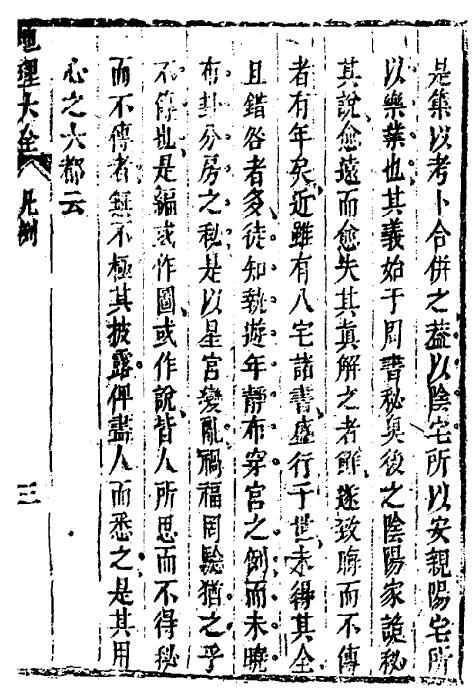 是集以考卜合併之蓋以陰宅所以安親陽宅所
以樂業也其義始于周書秘奧後之陰陽家詭秘
其說愈遠而愈失其眞解之者鮮遂致晦而不傳
者有年矣近雖有八宅諸書盛行于世未得其全
且錯咎者多徒知執遊年靜布穿宮之例而未曉
布卦分房之秘是以星宮變亂禍福罔驗猶之乎
不傳也是編或作圖或作說皆人所思而不得秘
而不傳者無不極其披露俾盡人而悉之是其用
心之大都云
地理大全 凡例 三